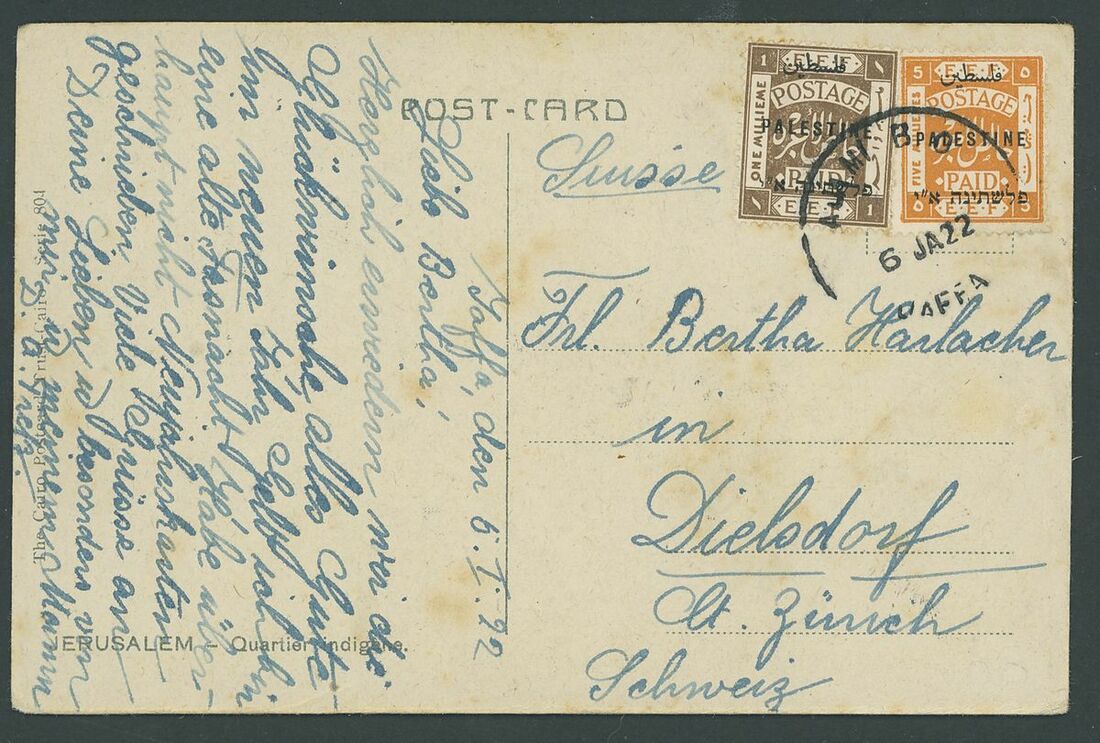 POST-CARD
Jaffa, den 6. I. 22
Liebe Bertha,
Herzlich erwiedern wir die
Glückwünsche, alles Gute
im neuen Jahr. Gelt ich bin
eine alte Fasnacht. Habe über-
haupt nicht Neujahrskarten
geschrieben. Viele Grüsse an
Deine Lieben u. besonders von
mir u. meinem Mann
The Cairo Postcard Trust Cairo Serie 804
JERUSALEM – Quartier indigène.
Suisse
Frl. Bertha Harlacher
in
Dielsdorf
Ct. Zürich
Schweiz
1 E.E.F ١
فلسطين
POSTAGE
PALESTINE
ONE MILLIEME
PAID
פלשתינה א״י
١ E.E.F 1
5 E.E.F ٥
فلسطين
POSTAGE
PALESTINE
FIVE MILLIEMES
PAID
פלשתינה א״י
٥ E.E.F 5
6 JA 22
JAFFA